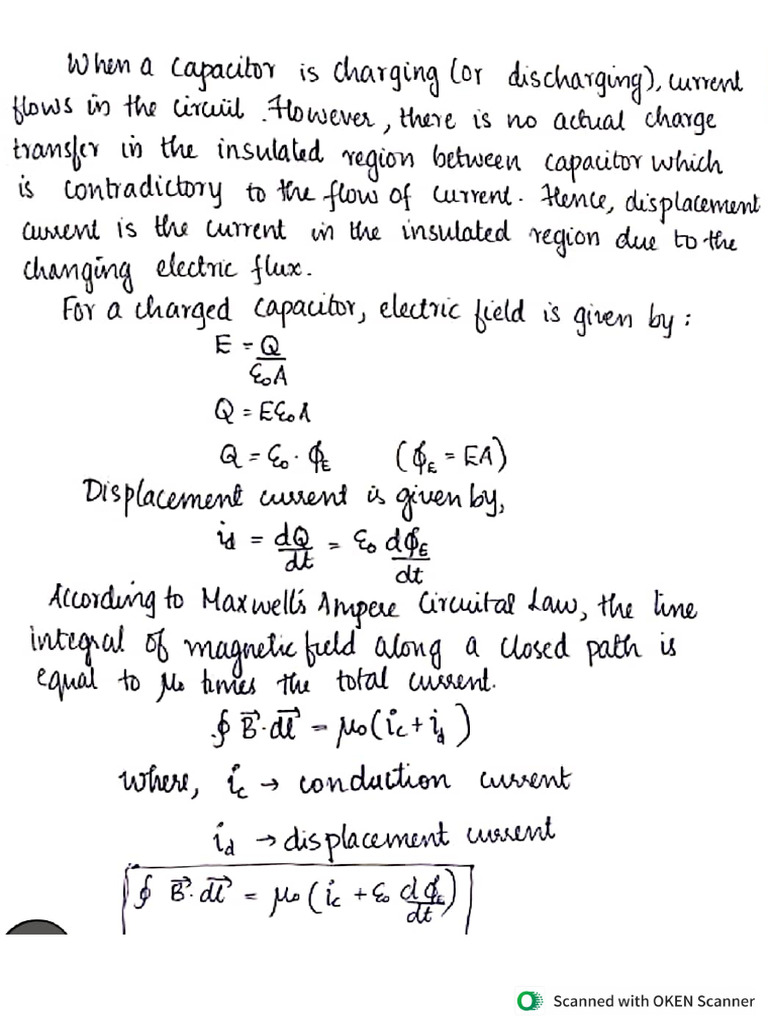 When a capacitor is charging (or discharging), current
flows in the circuit. However, there is no actual charge
transfer in the insulated region between capacitor which
is contradictory to the flow of current. Hence, displacement
current is the current in the insulated region due to the
changing electric flux.
For a charged capacitor, electric field is given by :
E = Q/ε₀A
Q = Eε₀A
Q = ε₀ · ϕ_E (ϕ_E = EA)
Displacement current is given by,
i_d = dQ/dt = ε₀ dϕ_E/dt
According to Maxwell's Ampere Circuital Law, the line
integral of magnetic field along a closed path is
equal to μ₀ times the total current.
∮ B⃗ · dl⃗ = μ₀(i_c + i_d)
where, i_c → conduction current
i_d → displacement current
∮ B⃗ · dl⃗ = μ₀(i_c + ε₀ dϕ_E/dt)
Scanned with OKEN Scanner